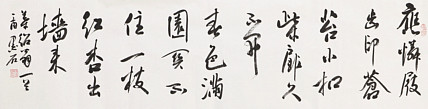 應憐屐
齒印蒼
苔小扣
柴扉久
不開
春色滿
園關不
住一枝
紅杏出
墻來
葉紹翁一首